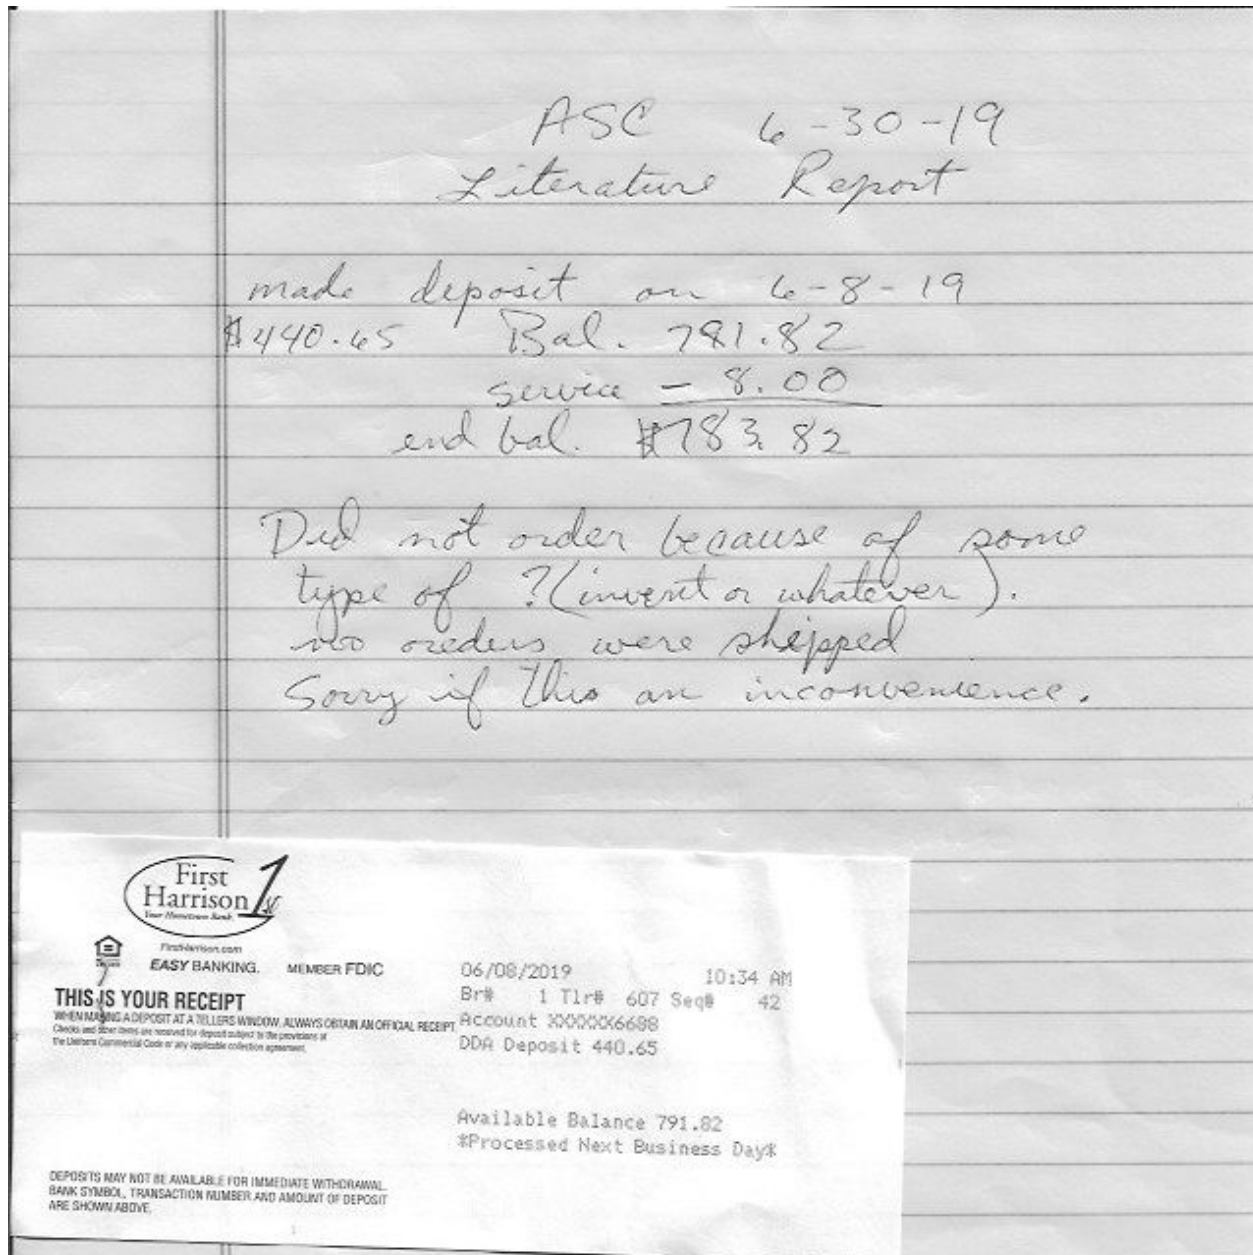 ASC 6-30-19
Literature Report
made deposit on 6-8-19
$440.65 Bal. 791.82
service - 8.00
end bal. $783.82
Did not order because of some
type of ?(invent or whatever).
no orders were shipped
Sorry if this an inconvenience.
First
Harrison 1st
Your Hometown Bank
FirstHarrison.com
EASY BANKING. MEMBER FDIC
THIS IS YOUR RECEIPT
WHEN MAKING A DEPOSIT AT A TELLERS WINDOW, ALWAYS OBTAIN AN OFFICIAL RECEIPT
Checks and other items are received for deposit subject to the provisions of
the Uniform Commercial Code or any applicable collection agreement.
06/08/2019 10:34 AM
Br# 1 Tlr# 607 Seq# 42
Account XXXXXX6688
DDA Deposit 440.65
Available Balance 791.82
*Processed Next Business Day*
DEPOSITS MAY NOT BE AVAILABLE FOR IMMEDIATE WITHDRAWAL.
BANK SYMBOL, TRANSACTION NUMBER AND AMOUNT OF DEPOSIT
ARE SHOWN ABOVE.